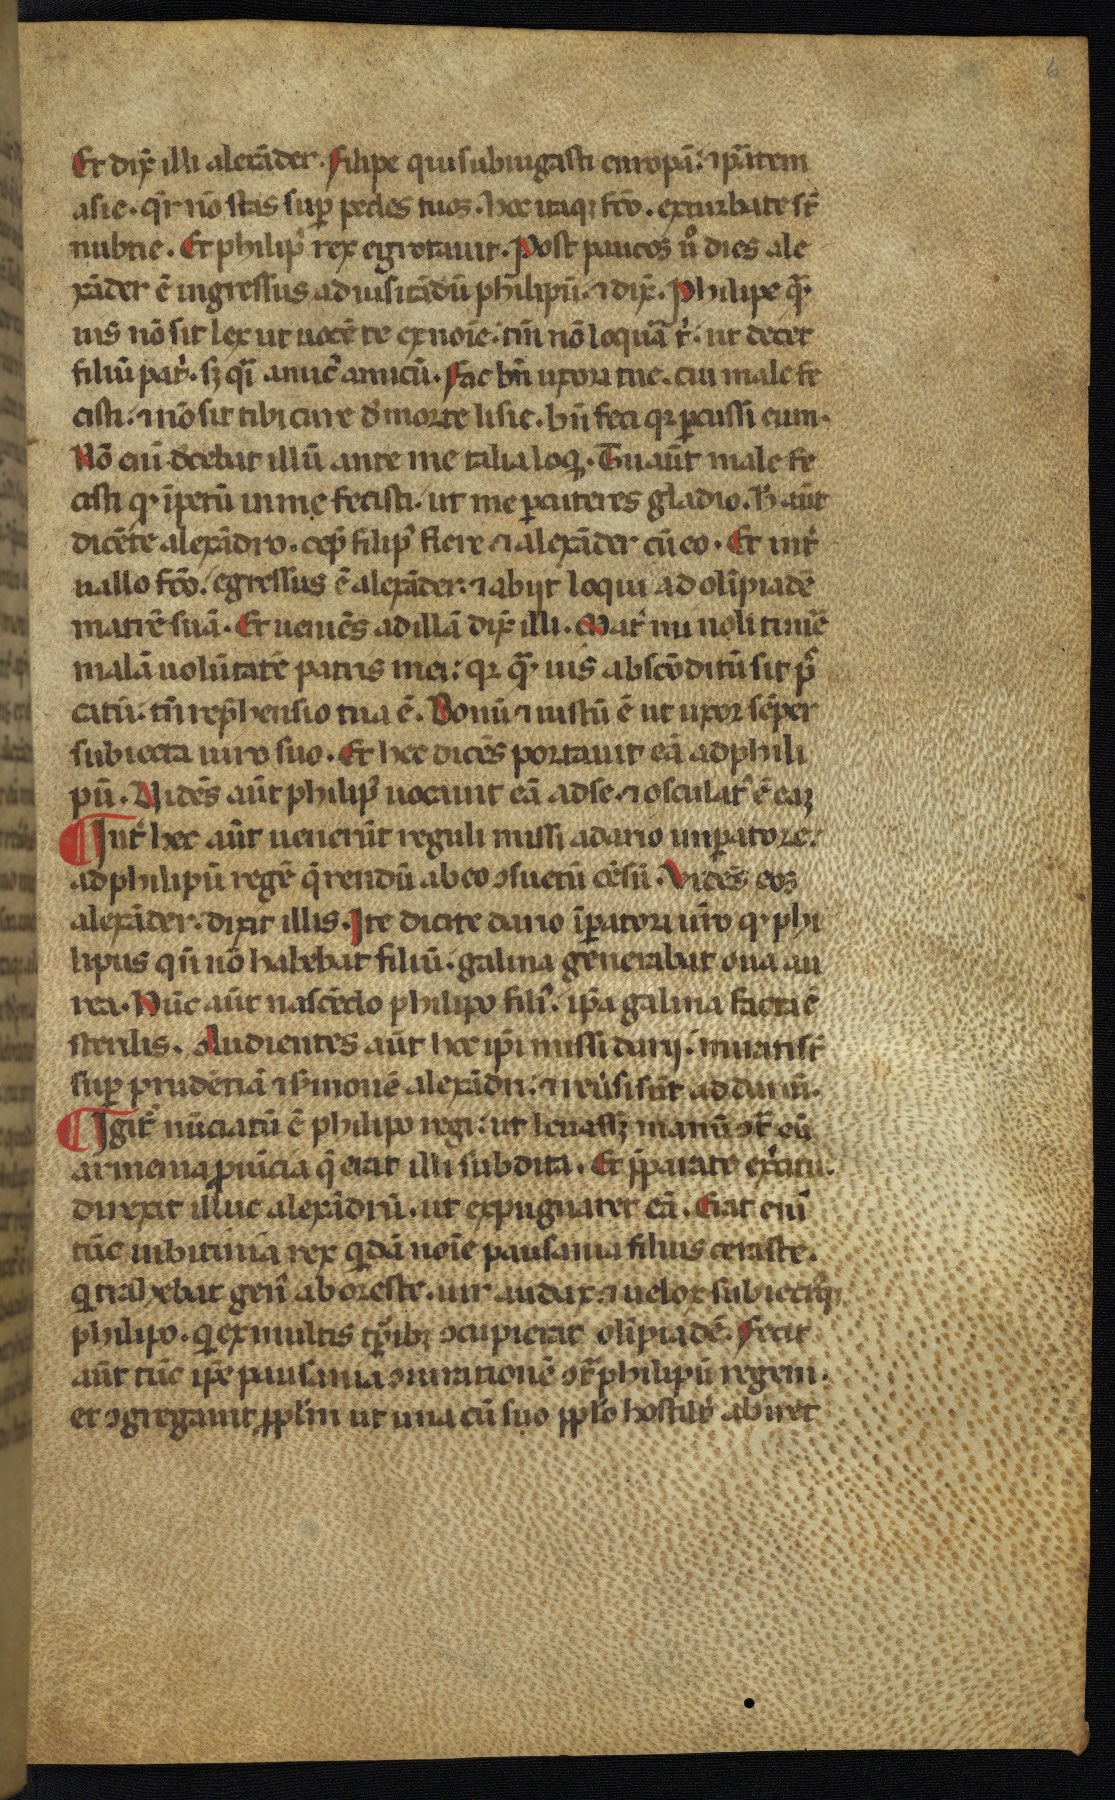 6
Et dix̃ illi alexãder. Filipe qui subiugasti europã. ⁊ ꝑtem
asie. q̃r nõ stas suꝑ pedes tuos. hec itaqꝫ fc̃o. exturbate st̃
nubtie. Et philip᷒ rex egrotauit. Post paucos ũo dies ale
xãder ẽ ingressus ad uisitãdũ philipũ. ⁊ dix̃. Philipe q̃
uis nõ sit lex ut uocẽ te ex noĩe. tm̃ nõ loquar̃ t̃. ut decet
filiũ pat̃. sꝫ q̃i amic᷒ amicũ. Fac bñ uxori tue. cui male fe
cisti. ⁊ nõ sit tibi cure d̃ morte lisie. bñ feci qꝛ ꝑcussi eum.
Nõ eni᷒ dcebat illũ ante me talia loq̃. Tu aũt male fe
cisti qꝫ ĩpetũ in me fecisti. ut me ꝑcuteres gladio. H̃ aũt
dicẽte alexãdro. cep̃ filip᷒ flere ⁊ alexãder cũ eo. Et int̃
uallo fc̃o. egressus ẽ alexãder. ⁊ abijt loqui ad olĩpiadẽ
matrẽ suã. Et ueniẽs ad illã dix̃ illi. Mat̃ mi noli timẽ
malã uolũtatẽ patris mei. qꝛ q̃ uis abscõditũ sit p̃
catũ. tñ rep̃hensio tua ẽ. Bonũ ⁊ iustũ ẽ ut uxor sẽper
subiecta uiro suo. Et hec dicẽs portauit eã ad phili
pũ. Uidẽs aũt philip᷒ uocauit eã ad se. ⁊ osculat᷒ ẽ eaꝫ
¶ Int̃ hec aũt uenerũt reguli missi a dario imꝑatore.
ad philipũ regẽ q̃rendũ ab eo ꝯsuetũ cẽsũ. Vidẽs eos
alexãder. dixit illis. Ite dicite dario ĩꝑatori ur̃o qꝫ phi
lipus qñ nõ habebat filiũ. galina generabat oua au
rea. Nũc aũt nascẽdo philipo fili᷒. ip̃a galina facta ẽ
sterilis. Audientes aũt hec ip̃i missi darij. mirati st̃
suꝑ prudẽtiã ⁊ s̃monẽ alexãdri. ⁊ reũsi sũt ad dariũ.
¶ Igit̃ nũciatũ ẽ philipo regi. ut leuassꝫ manũ ꝯt̃ eũ
armenia ꝓuicia q̃ erat illi subdita. Et p̃parato exc̃itu.
direxit illuc alexãdrũ. ut expugnaret eã. Erat eni᷒
tũc in bitinia rex qdã noĩe pausania filius ceraste.
q̃ trahebat gen᷒ ab oreste. uir audax ⁊ uelox subiect᷒
philipo. q̃ ex multis tp̃ibꝫ ꝯcupierat olĩpiadẽ. Fecit
aũt tũc ip̃e pausania ꝯiurationẽ ꝯt̃ philipũ regem.
et ꝯgregauit pp̃lm ut una cũ suo pp̃lo hostilit̃ abiret